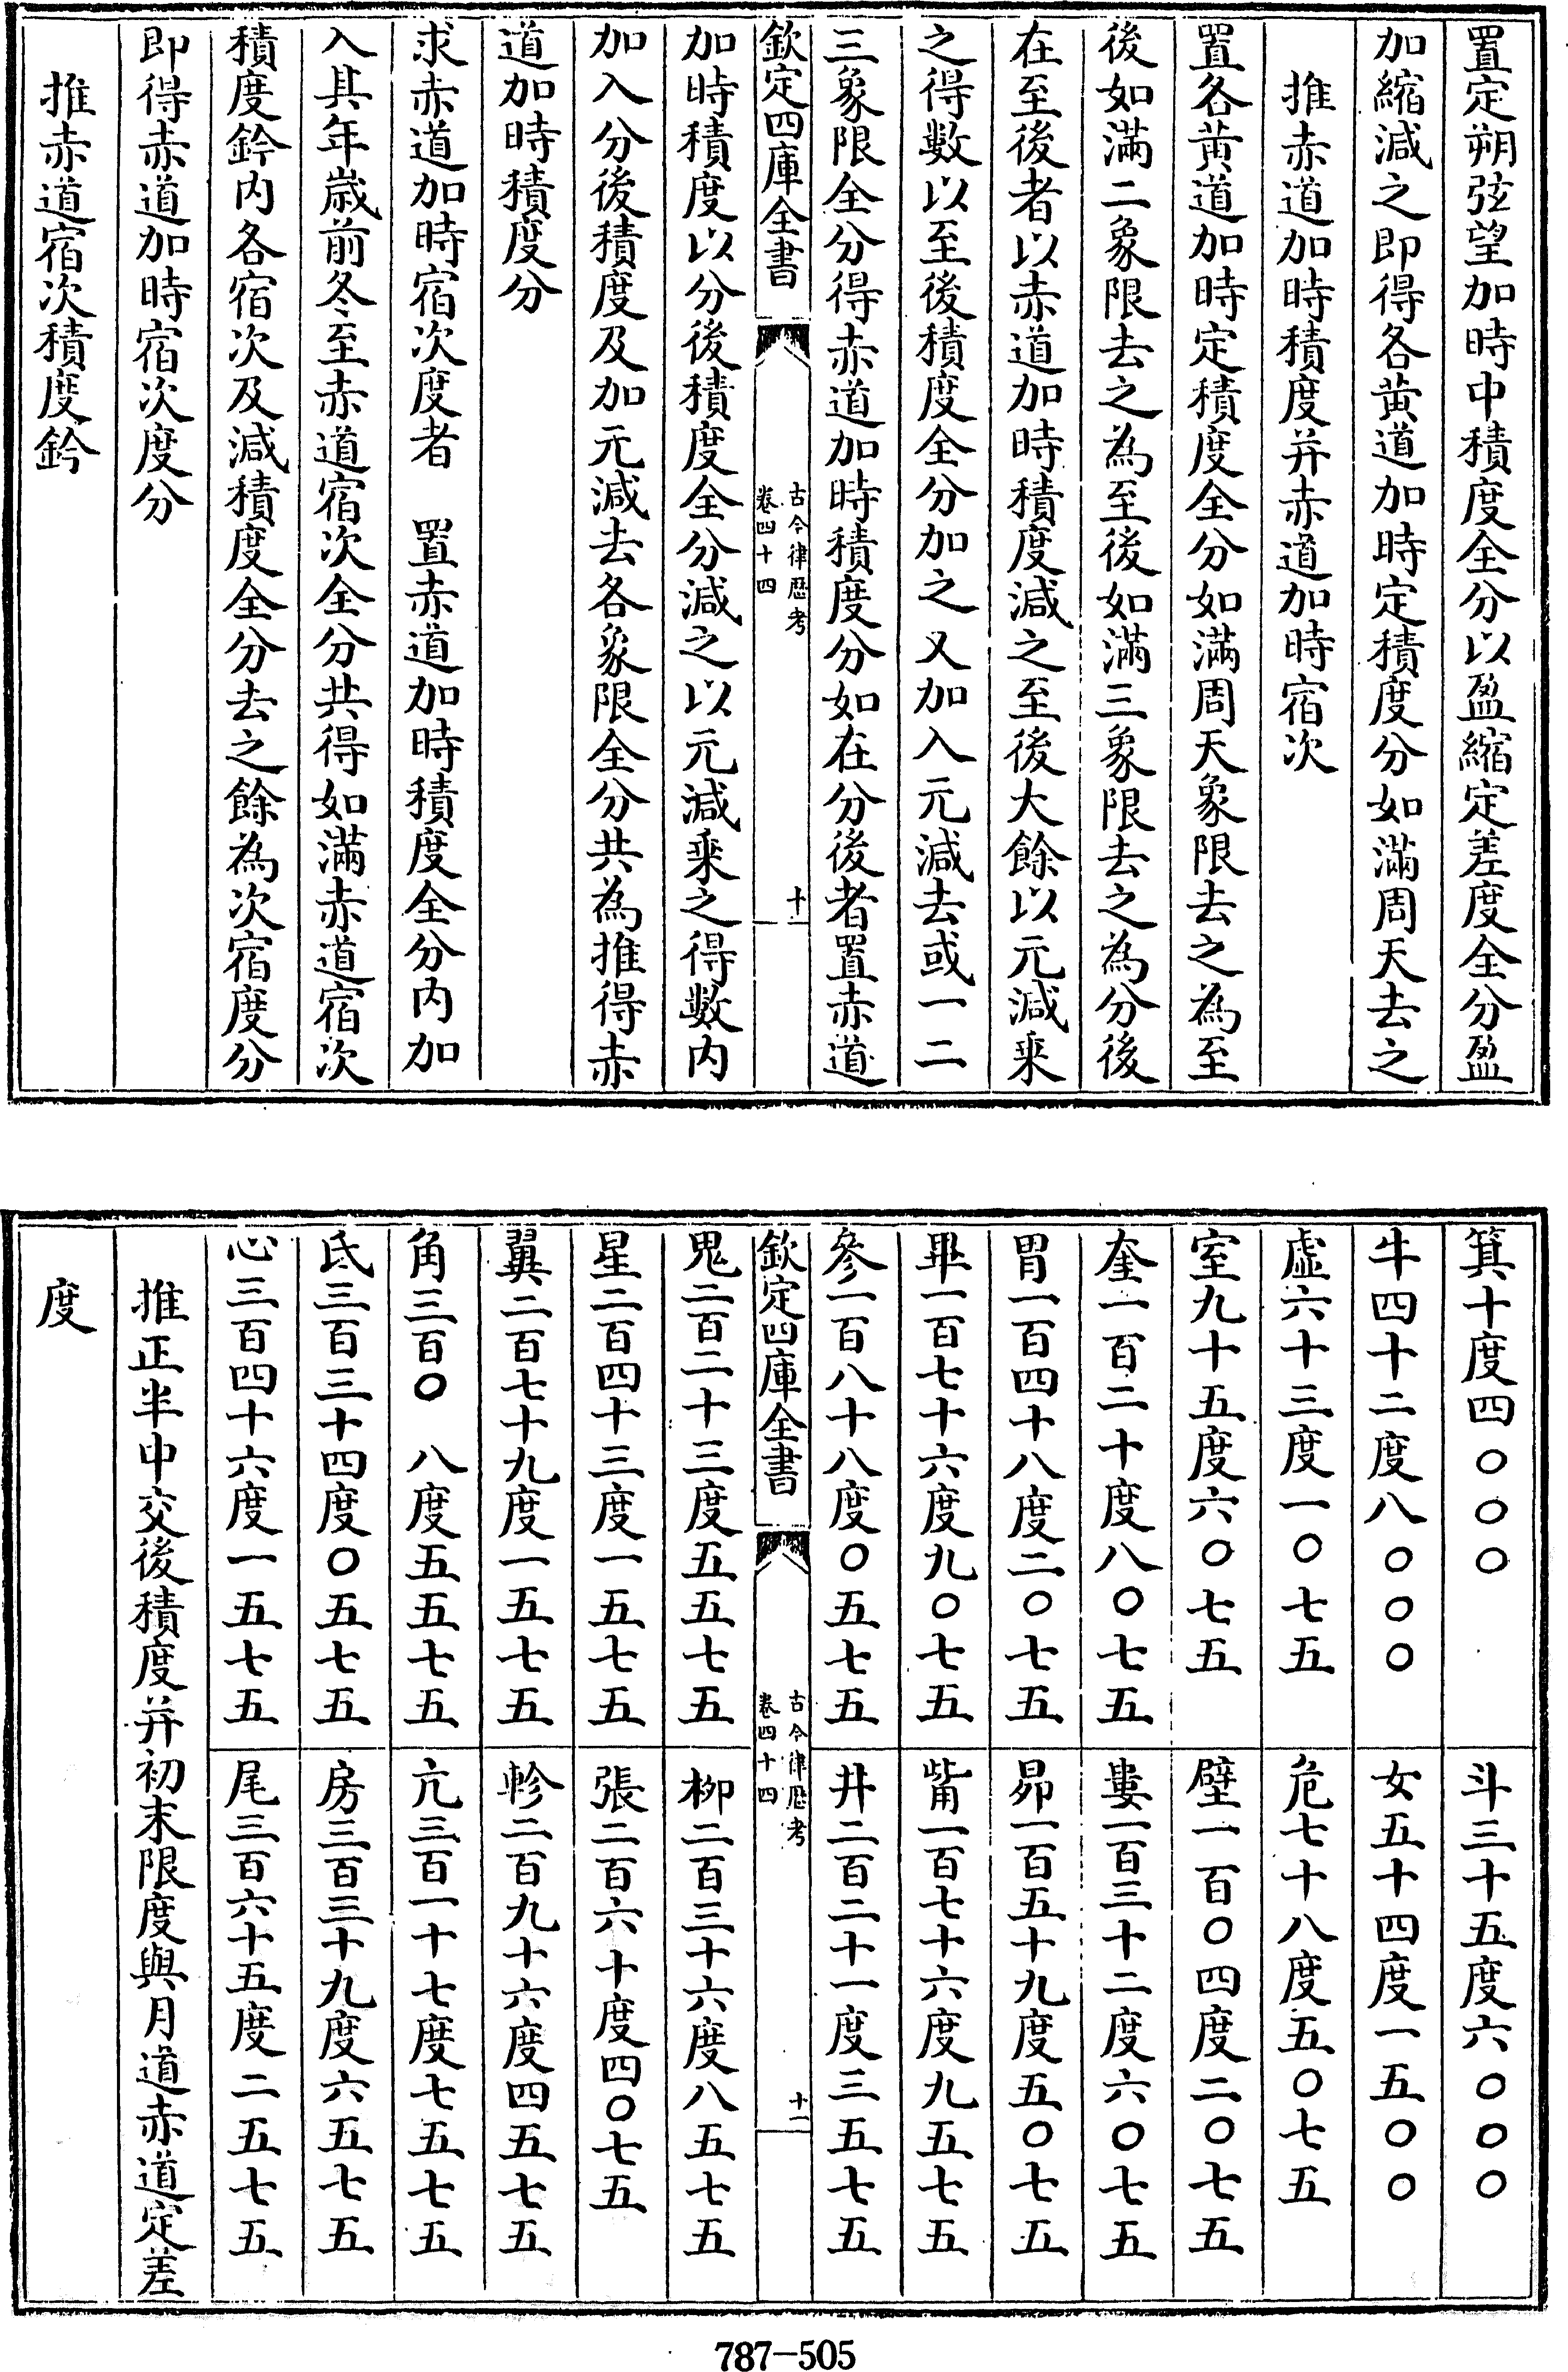 置定朔弦望加時中積度全分以盈縮定差度全分盈
加縮減之即得各黄道加時定積度分如滿周天去之
推赤道加時積度并赤道加時宿次
置各黄道加時定積度全分如滿周天象限去之為至
後如滿二象限去之為至後如滿三象限去之為分後
在至後者以赤道加時積度減之至後大餘以元減乘
之得數以至後積度全分加之又加入元減去或一二
三象限全分得赤道加時積度分如在分後者置赤道
欽定四庫全書
古今律歴考
卷四十四
十一
加時積度以分後積度全分減之以元減乘之得數内
加入分後積度及加元減去各象限全分共為推得赤
道加時積度分
求赤道加時宿次度者　置赤道加時積度全分内加
入其年歲前冬至赤道宿次全分共得如滿赤道宿次
積度鈐内各宿次及減積度全分去之餘為次宿度分
即得赤道加時宿次度分
推赤道宿次積度鈐
箕十度四〇〇〇　斗三十五度六〇〇〇
牛四十二度八〇〇〇　女五十四度一五〇〇
虛六十三度一〇七五　危七十八度五〇七五
室九十五度六〇七五　壁一百〇四度二〇七五
奎一百二十度八〇七五　婁一百三十二度六〇七五
胃一百四十八度二〇七五　昴一百五十九度五〇七五
畢一百七十六度九〇七五　觜一百七十六度九五七五
參一百八十八度〇五七五　井二百二十一度三五七五
欽定四庫全書
古今律歴考
卷四十四
十二
鬼二百二十三度五五七五　柳二百三十六度八五七五
星二百四十三度一五七五　張二百六十度四〇七五
翼二百七十九度一五七五　軫二百九十六度四五七五
角三百〇　八度五五七五　亢三百一十七度七五七五
氐三百三十四度〇五七五　房三百三十九度六五七五
心三百四十六度一五七五　尾三百六十五度二五七五
推正半中交後積度并初末限度與月道赤道定差
度
787-505